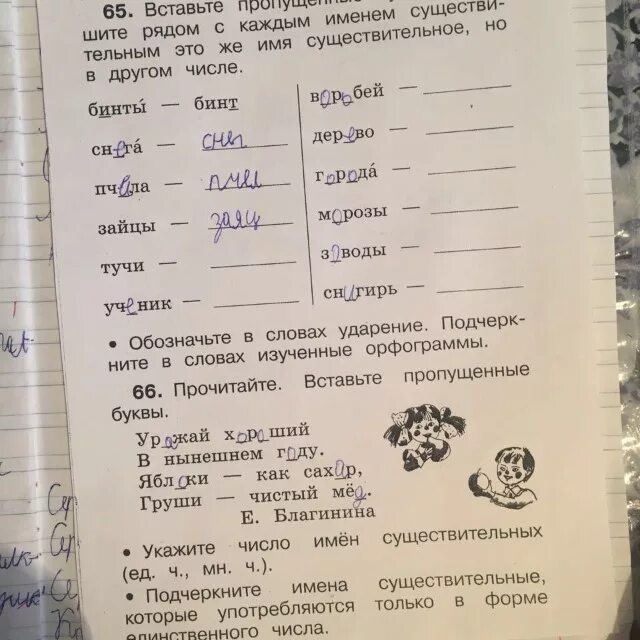 65. Вставьте пропущенные
шите рядом с каждым именем существи-
тельным это же имя существительное, но
в другом числе.
бинты́ — бинт
снега́ — снег
пчела — пчел
зайцы — заяц
тучи —
ученик —
воробей —
дерево —
города́ —
морозы —
заводы —
снигирь —
• Обозначьте в словах ударение. Подчерк-
ните в словах изученные орфограммы.
66. Прочитайте. Вставьте пропущенные
буквы.
Урожай хороший
В нынешнем году.
Яблоки — как сахор,
Груши — чистый мёд.
Е. Благинина
• Укажите число имён существительных
(ед. ч., мн. ч.).
• Подчеркните имена существительные,
которые употребляются только в форме
единственного числа.